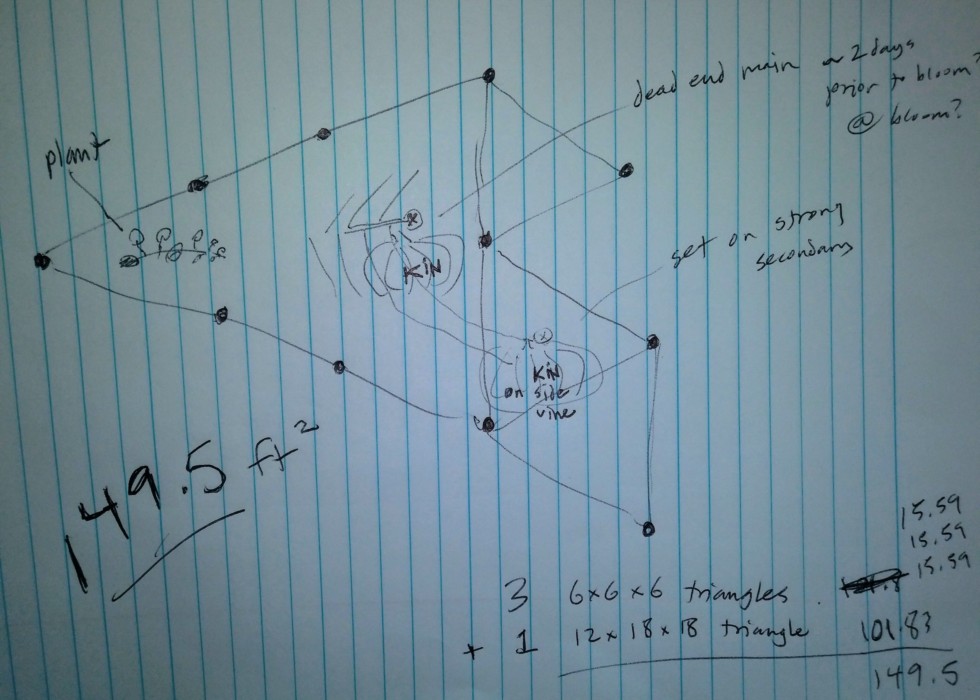 dead end main ~ 2 days
prior to bloom?
@ bloom?
plant
KiN
set on strong
secondary
KiN
on side
vine
149.5 ft²
15.59
15.59
15.59
3 6x6x6 triangles.
+ 1 12x18x18 triangle 101.83
149.5